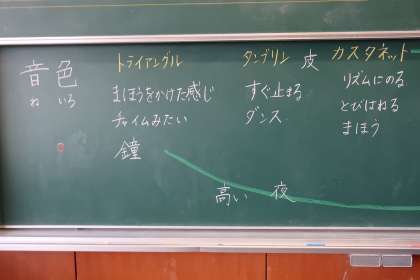 音色
ねいろ
トライアングル
まほうをかけた感じ
チャイムみたい
鐘
タンブリン 皮
すぐ止まる
ダンス
カスタネット
リズムにのる
とびはねる
まほう
高い 夜